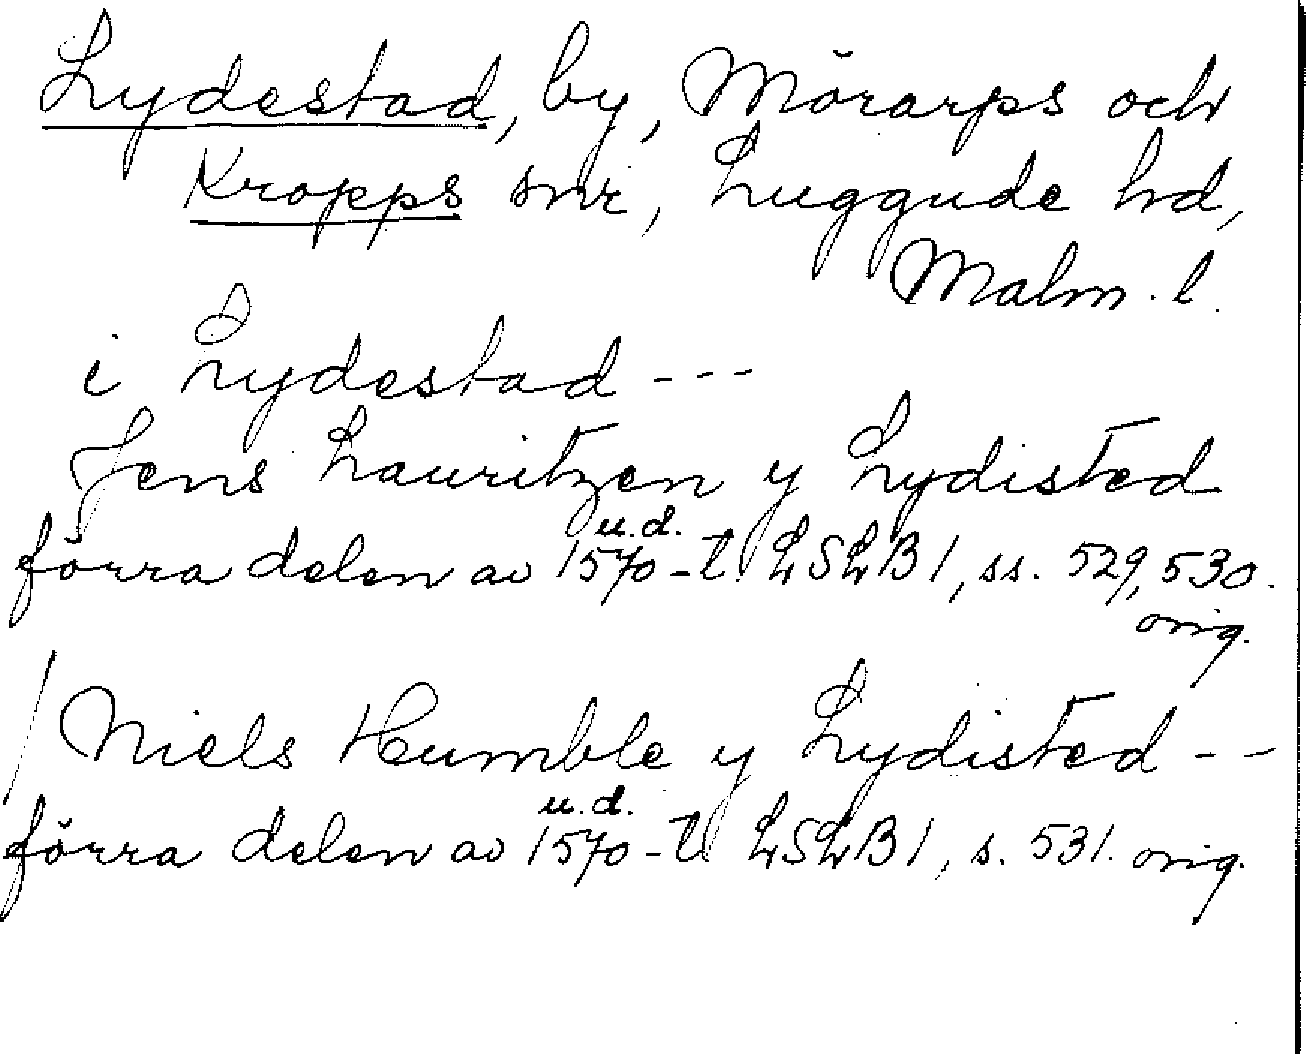 Lydestad, by, Mörarps och
Kropps snr, Luggude hd,
Malm. l.
i Lydestad ---
Jens Lauritzen y Lydisted
u.d.
förra delen av 1570-t. LSLB1, ss. 529, 530.
orig.
/ Niels Humble y Lydisted --
u.d.
förra delen av 1570-t. LSLB1, s. 531. orig.